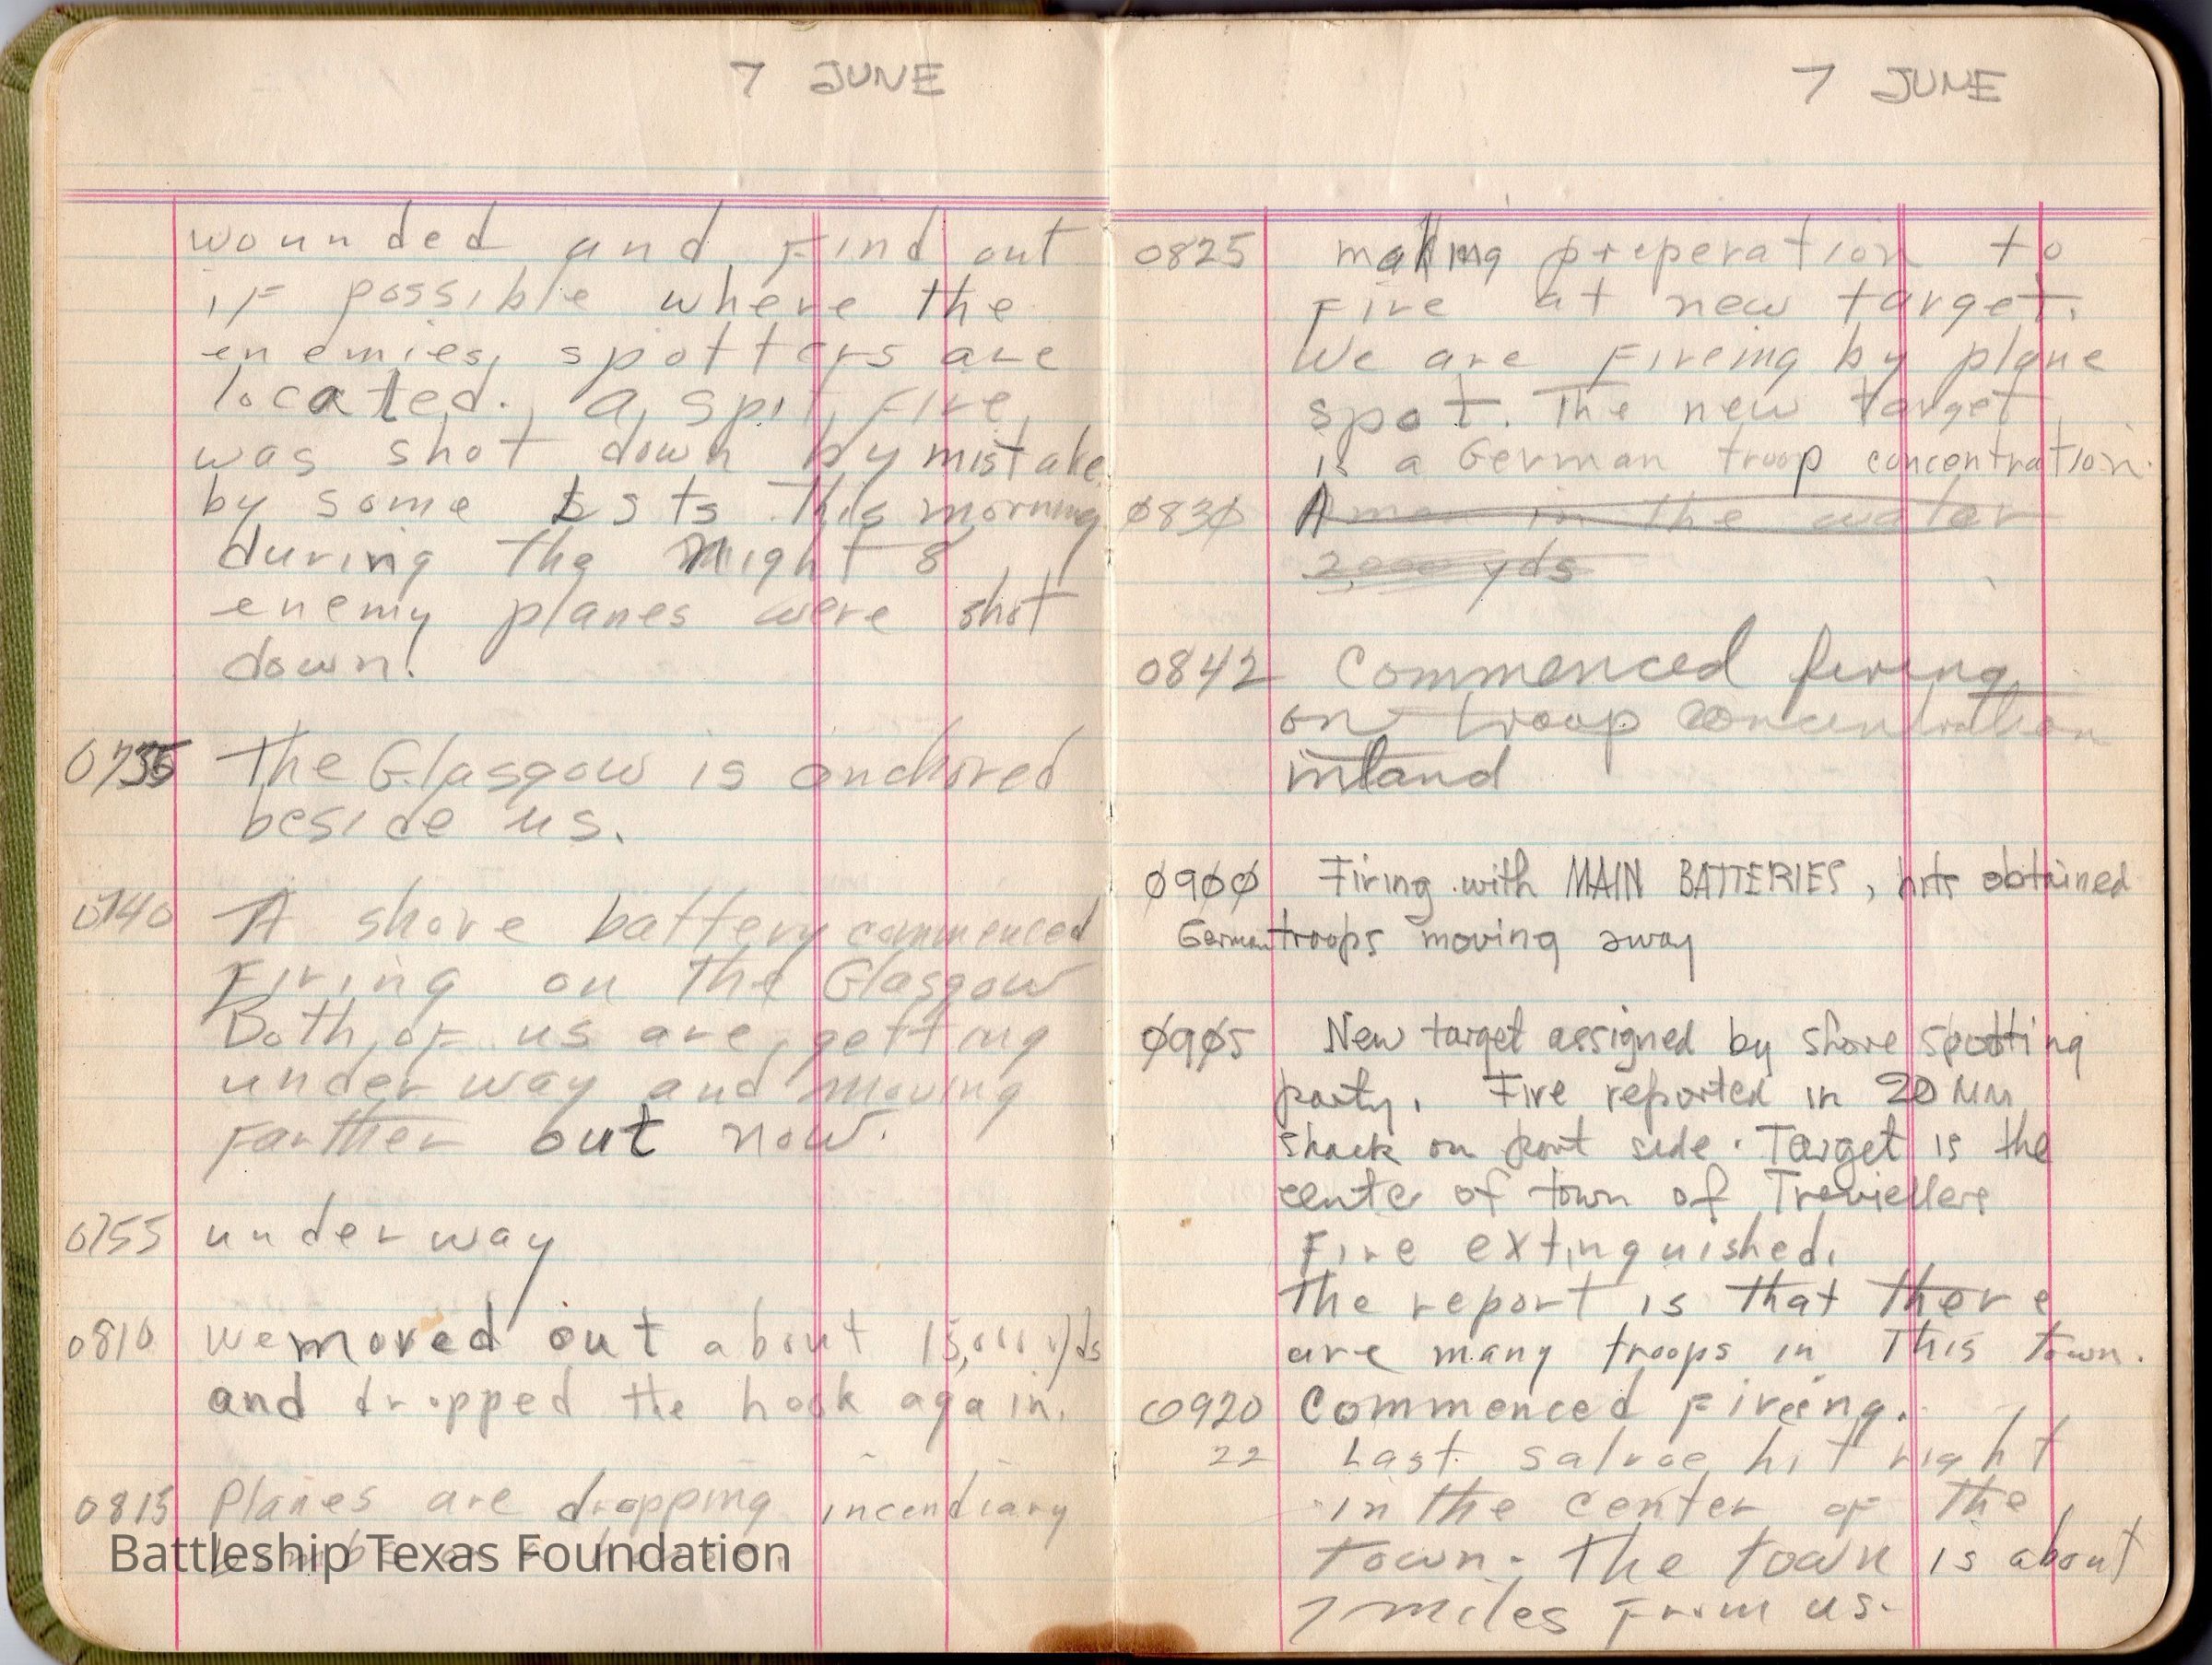 7 JUNE
wounded and find out
if possible where the
enemies, spotters are
located. A spit fire,
was shot down by mistake
by some Lsts this morning
during the night 8
enemy planes were shot
down.
0735 The Glasgow is anchored
beside us.
0740 A shore battery commenced
Firing on the Glasgow
Both of us are getting
under way and moving
farther out now.
0755 underway
0810 we moved out about 15,000 yds
and dropped the hook again.
0815 Planes are dropping incendiary
Battleship Texas Foundation
7 JUNE
0825 making preperation to
Fire at new target.
We are Fireing by plane
spot. The new target
is a German troop concentration.
0830 A man in the water
2,000 yds
0842 Commenced firing
on troop concentration
inland
0900 Firing with MAIN BATTERIES, hits obtained
German troops moving away
0905 New target assigned by shore spotting
party. Fire reported in 20 MM
shack on port side. Target is the
center of town of
Fire extinguished.
The report is that there
are many troops in This town.
0920 Commenced Fireing.
22 Last salvoe hit right
in the center of the
town. The town is about
7 miles From us.